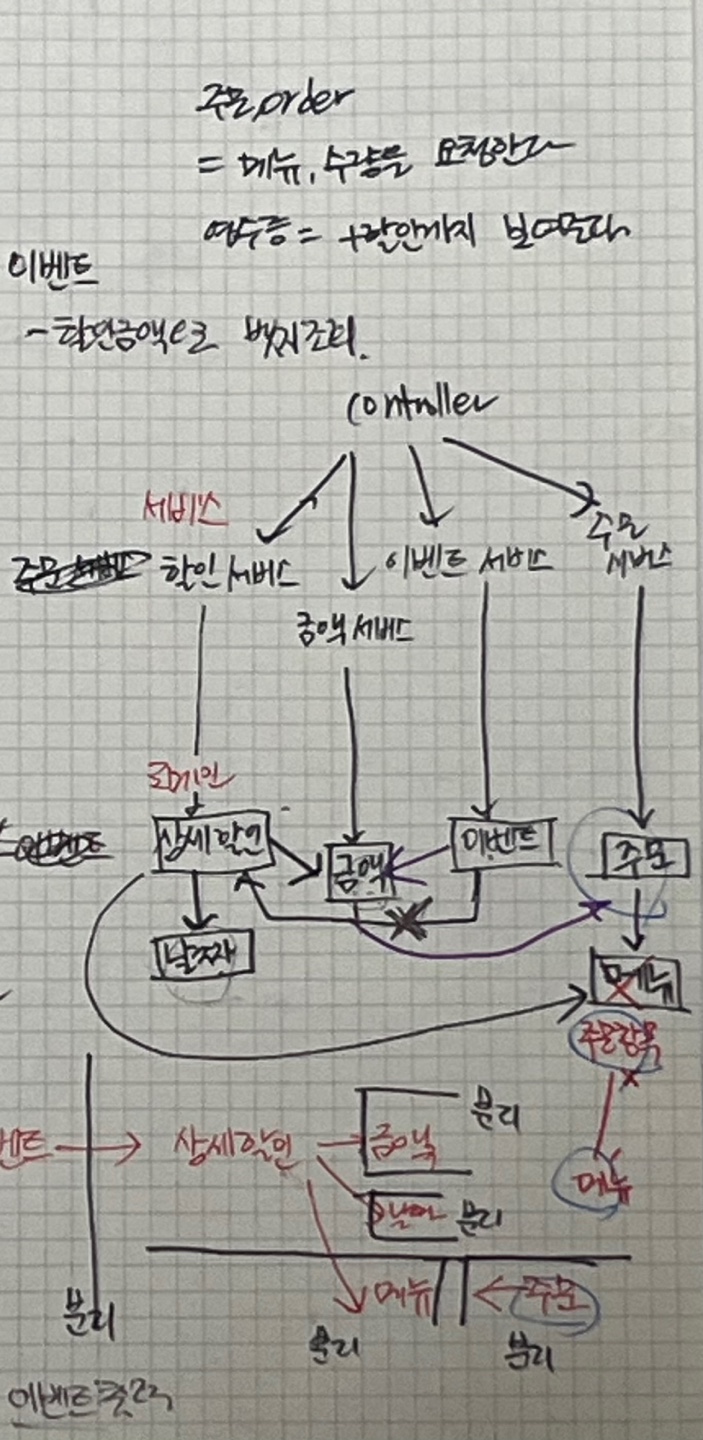 주문, order
= 메뉴, 수량을 요청한다
영수증 = +할인까지 보여준다
이벤트
- 할인금액으로 뱃지조회.
Controller
서비스
할인 서비스
이벤트 서비스
주문
서비스
금액 서비스
도메인
상세 할인
금액
이벤트
주문
날짜
메뉴
주문항목
분리
벤트
상세 할인
금액
메뉴
날짜
분리
메뉴
주문
분리
분리
분리